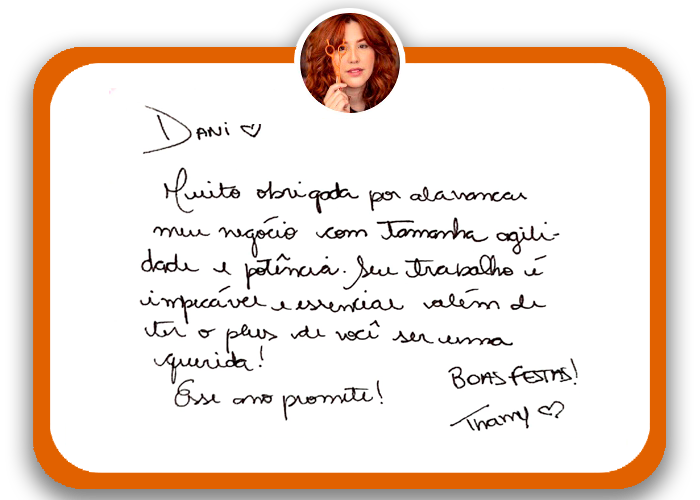 Dani ♡
Muito obrigada por alavancar
meu negócio com tamanha agili-
dade e potência. Seu trabalho é
impecável e essencial além de
ter o plus de você ser uma
querida!
Esse ano promete!
BOAS FESTAS!
Thamy ♡